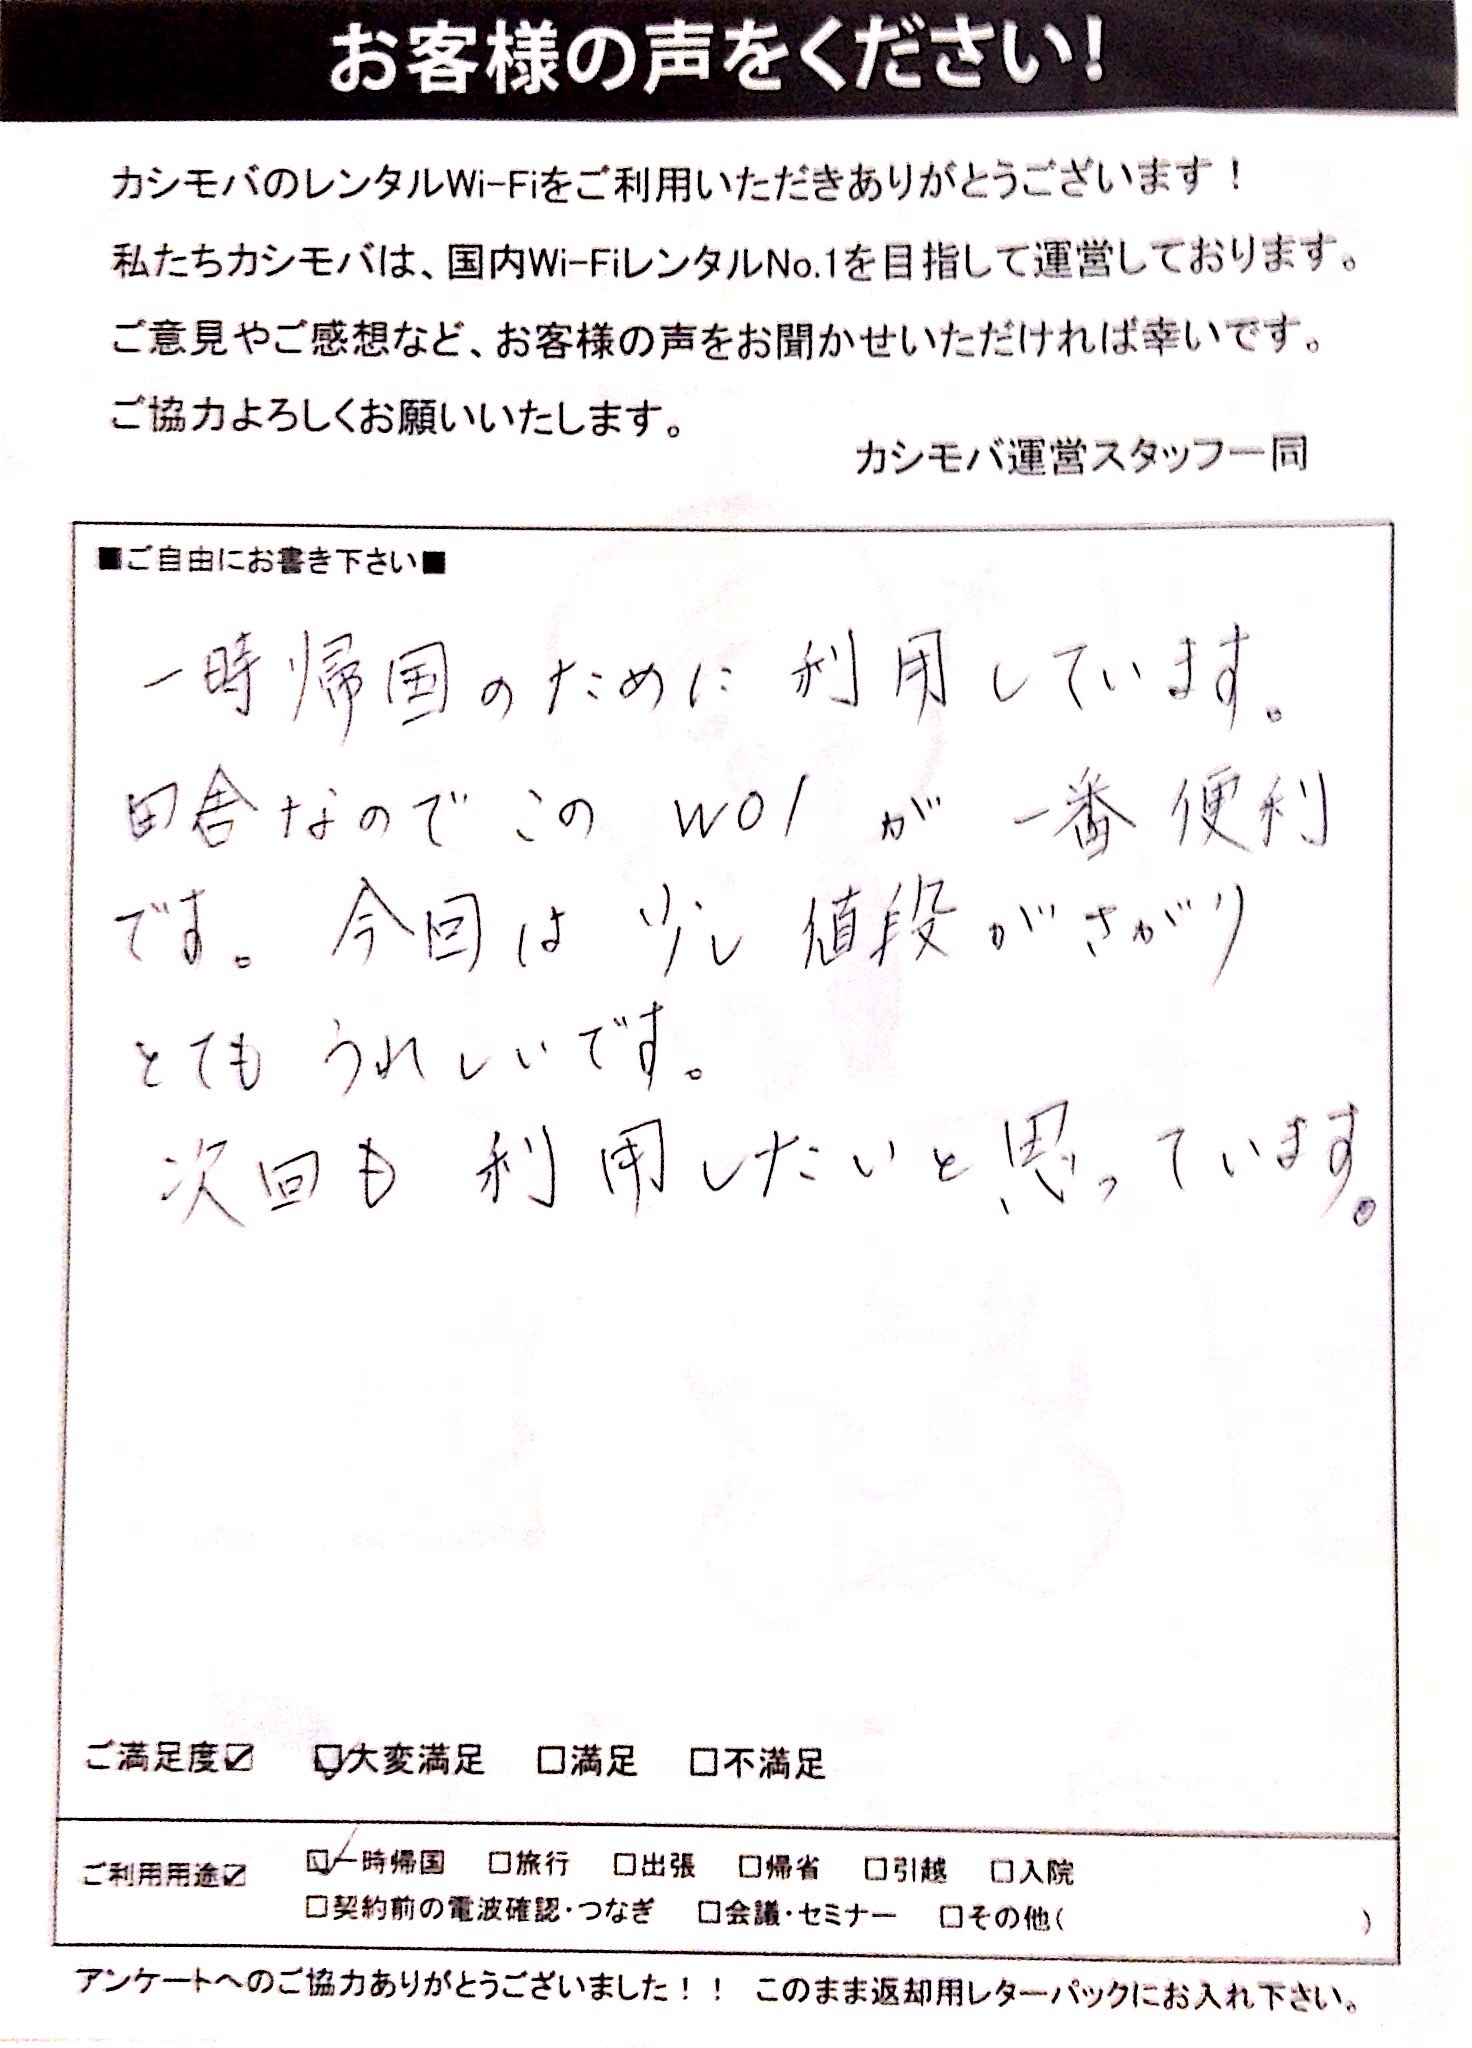 お客様の声をください!
カシモバのレンタルWi-Fiをご利用いただきありがとうございます!
私たちカシモバは、国内Wi-FiレンタルNo.1を目指して運営しております。
ご意見やご感想など、お客様の声をお聞かせいただければ幸いです。
ご協力よろしくお願いいたします。
カシモバ運営スタッフ一同
■ご自由にお書き下さい■
一時帰国のために利用しています。
田舎なのでこの W01 が 一番便利
です。今回は 少し 値段がさがり
とても うれしいです。
次回も 利用したいと思っています。
ご満足度☑ ☑大変満足 □満足 □不満足
ご利用用途☑ ☑一時帰国 □旅行 □出張 □帰省 □引越 □入院
□契約前の電波確認・つなぎ □会議・セミナー □その他( )
アンケートへのご協力ありがとうございました!! このまま返却用レターパックにお入れ下さい。